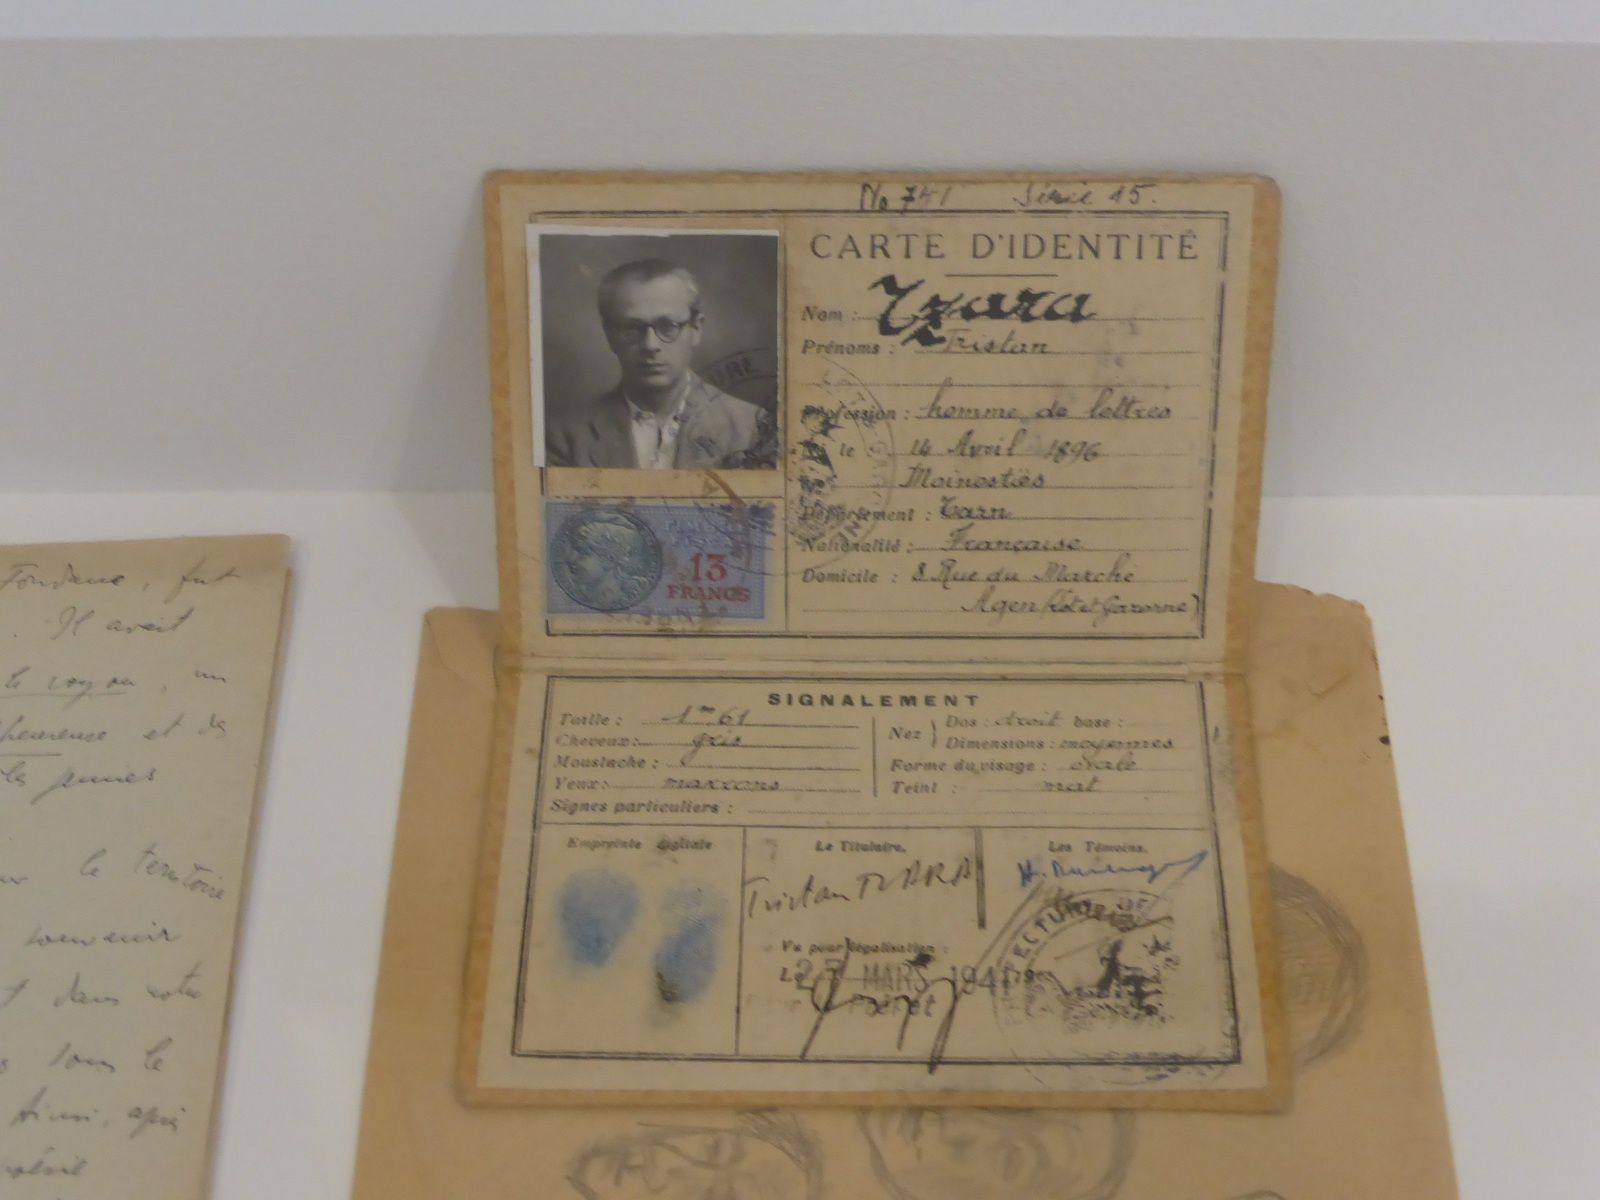 No 741 Série 15.
CARTE D'IDENTITÉ
Nom : Tzara
Prénoms : Tristan
Profession : homme de lettres
le 14 Avril 1896
Département : Tarn
Nationalité : Française
Domicile : 8 Rue du Marché
Agen (Lot et Garonne)
13
FRANCS
SIGNALEMENT
Taille : 1m 61
Cheveux : gris
Moustache :
Yeux : marrons
Signes particuliers :
Nez Dos : droit base :
Dimensions : moyennes
Forme du visage : ovale
Teint : mat
Empreinte digitale
Le Titulaire,
Tristan TZARA
Les Témoins,
Vu pour légalisation :
MARS 194
Préfet
fut
. Il avait
le voyou, un
et de
le territoire
souvenir
dans notre
sous le
Ainsi, après